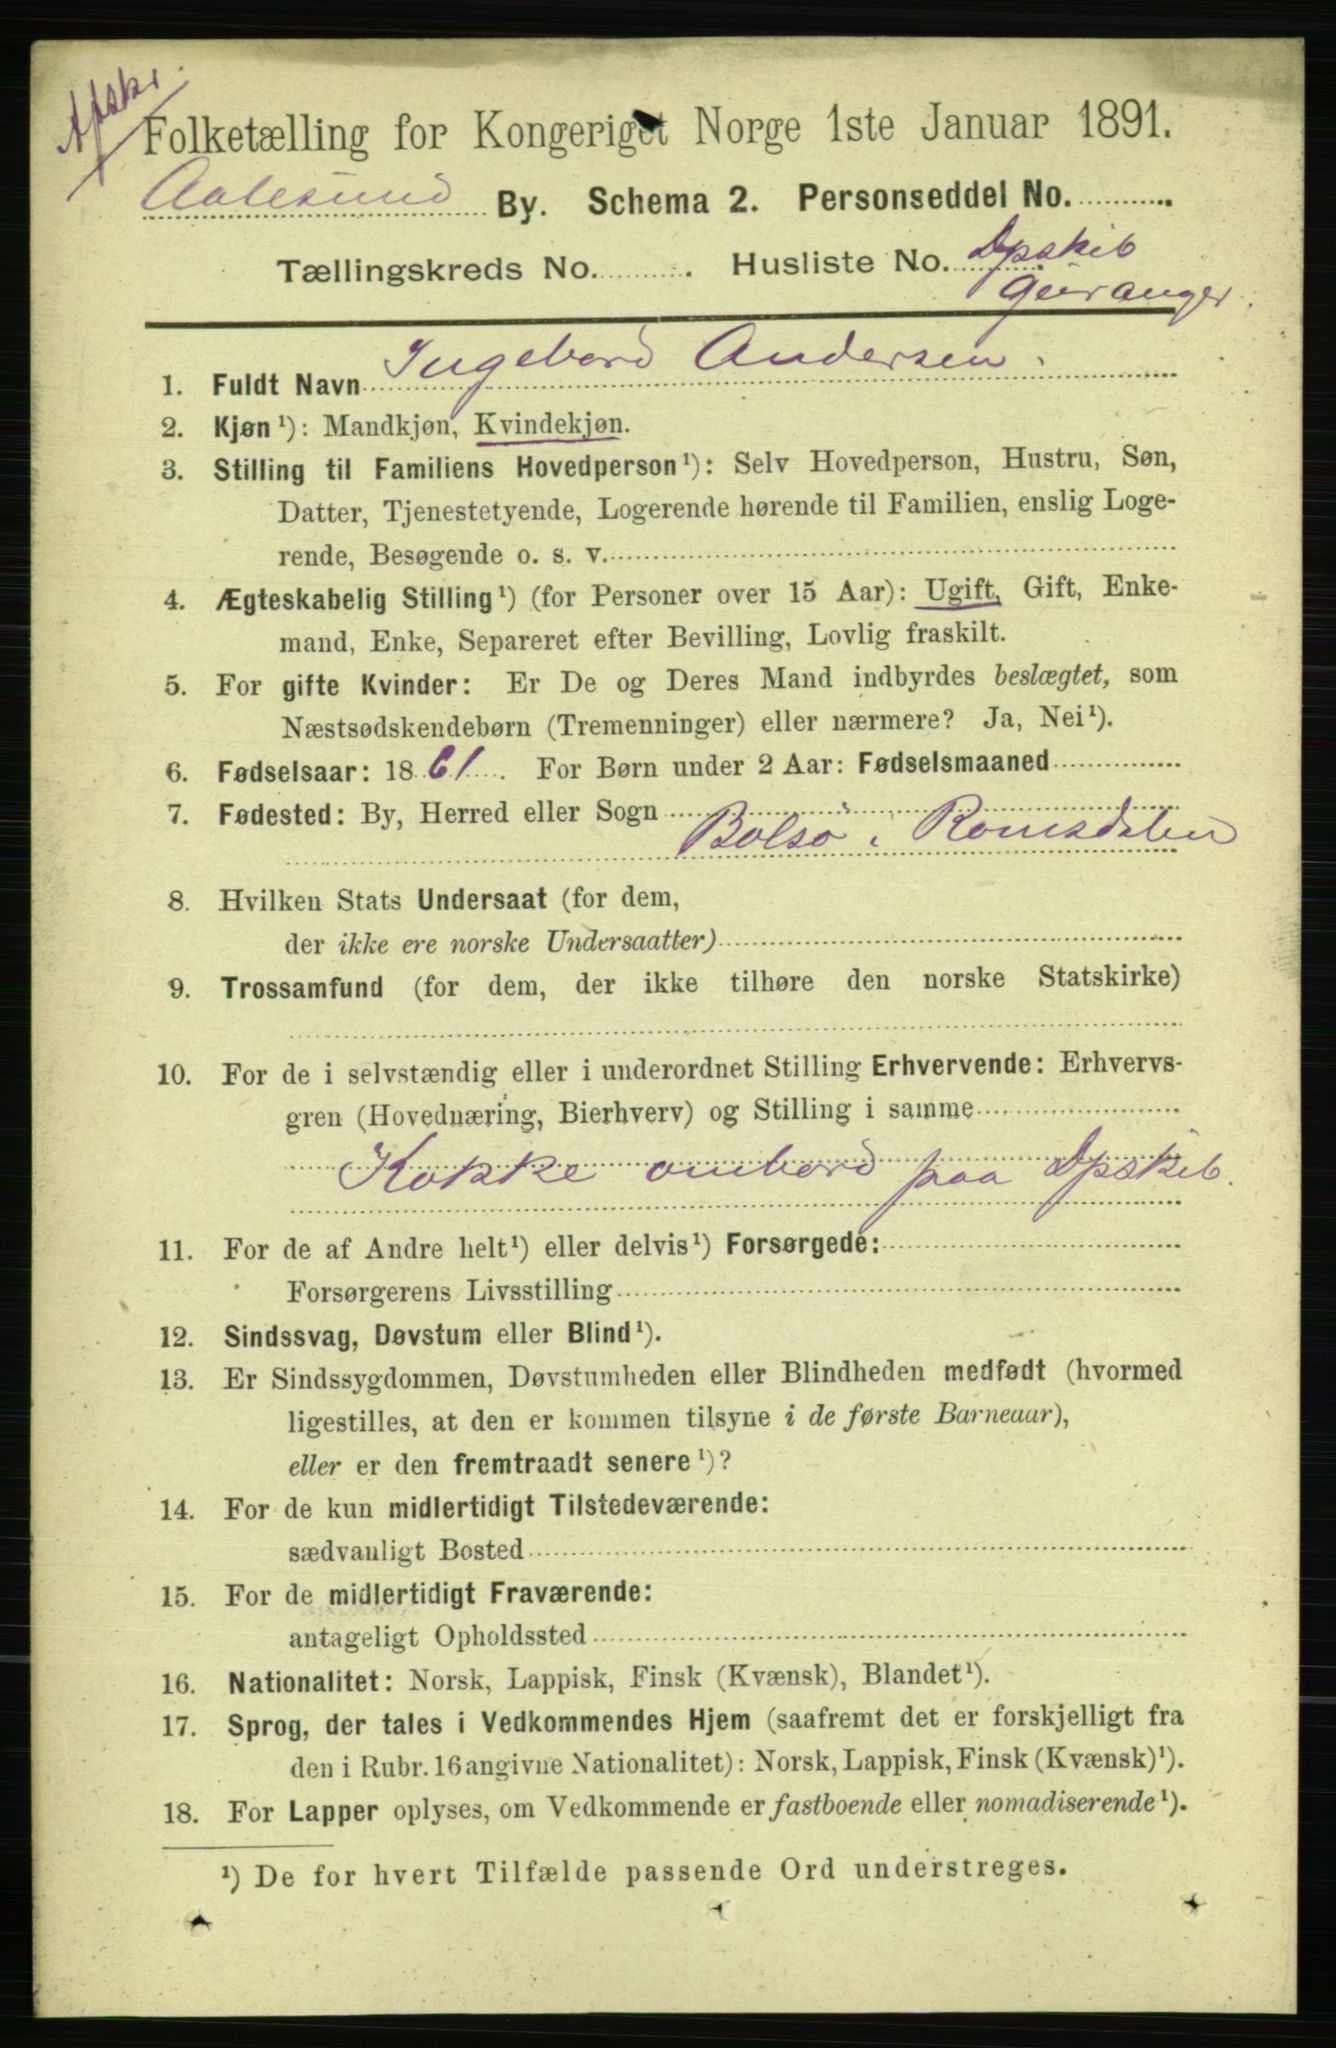 Afskr.
Folketælling for Kongeriget Norge 1ste Januar 1891.
Aalesund By. Schema 2. Personseddel No.
Tællingskreds No. Husliste No. Dpskib
Geiranger.
1. Fuldt Navn Ingebord Andersen.
2. Kjøn¹): Mandkjøn, Kvindekjøn.
3. Stilling til Familiens Hovedperson¹): Selv Hovedperson, Hustru, Søn,
Datter, Tjenestetyende, Logerende hørende til Familien, enslig Loge-
rende, Besøgende o. s. v.
4. Ægteskabelig Stilling¹) (for Personer over 15 Aar): Ugift, Gift, Enke-
mand, Enke, Separeret efter Bevilling, Lovlig fraskilt.
5. For gifte Kvinder: Er De og Deres Mand indbyrdes beslægtet, som
Næstsødskendebørn (Tremenninger) eller nærmere? Ja, Nei¹).
6. Fødselsaar: 1861. For Børn under 2 Aar: Fødselsmaaned
7. Fødested: By, Herred eller Sogn
Bolsø i Romsdalen
8. Hvilken Stats Undersaat (for dem,
der ikke ere norske Undersaatter)
9. Trossamfund (for dem, der ikke tilhøre den norske Statskirke)
10. For de i selvstændig eller i underordnet Stilling Erhvervende: Erhvervs-
gren (Hovednæring, Bierhverv) og Stilling i samme
Kokke ombord paa Dpskib.
11. For de af Andre helt¹) eller delvis¹) Forsørgede:
Forsørgerens Livsstilling
12. Sindssvag, Døvstum eller Blind¹).
13. Er Sindssygdommen, Døvstumheden eller Blindheden medfødt (hvormed
ligestilles, at den er kommen tilsyne i de første Barneaar),
eller er den fremtraadt senere¹)?
14. For de kun midlertidigt Tilstedeværende:
sædvanligt Bosted
15. For de midlertidigt Fraværende:
antageligt Opholdssted
16. Nationalitet: Norsk, Lappisk, Finsk (Kvænsk), Blandet¹).
17. Sprog, der tales i Vedkommendes Hjem (saafremt det er forskjelligt fra
den i Rubr. 16 angivne Nationalitet): Norsk, Lappisk, Finsk (Kvænsk)¹).
18. For Lapper oplyses, om Vedkommende er fastboende eller nomadiserende¹).
¹) De for hvert Tilfælde passende Ord understreges.